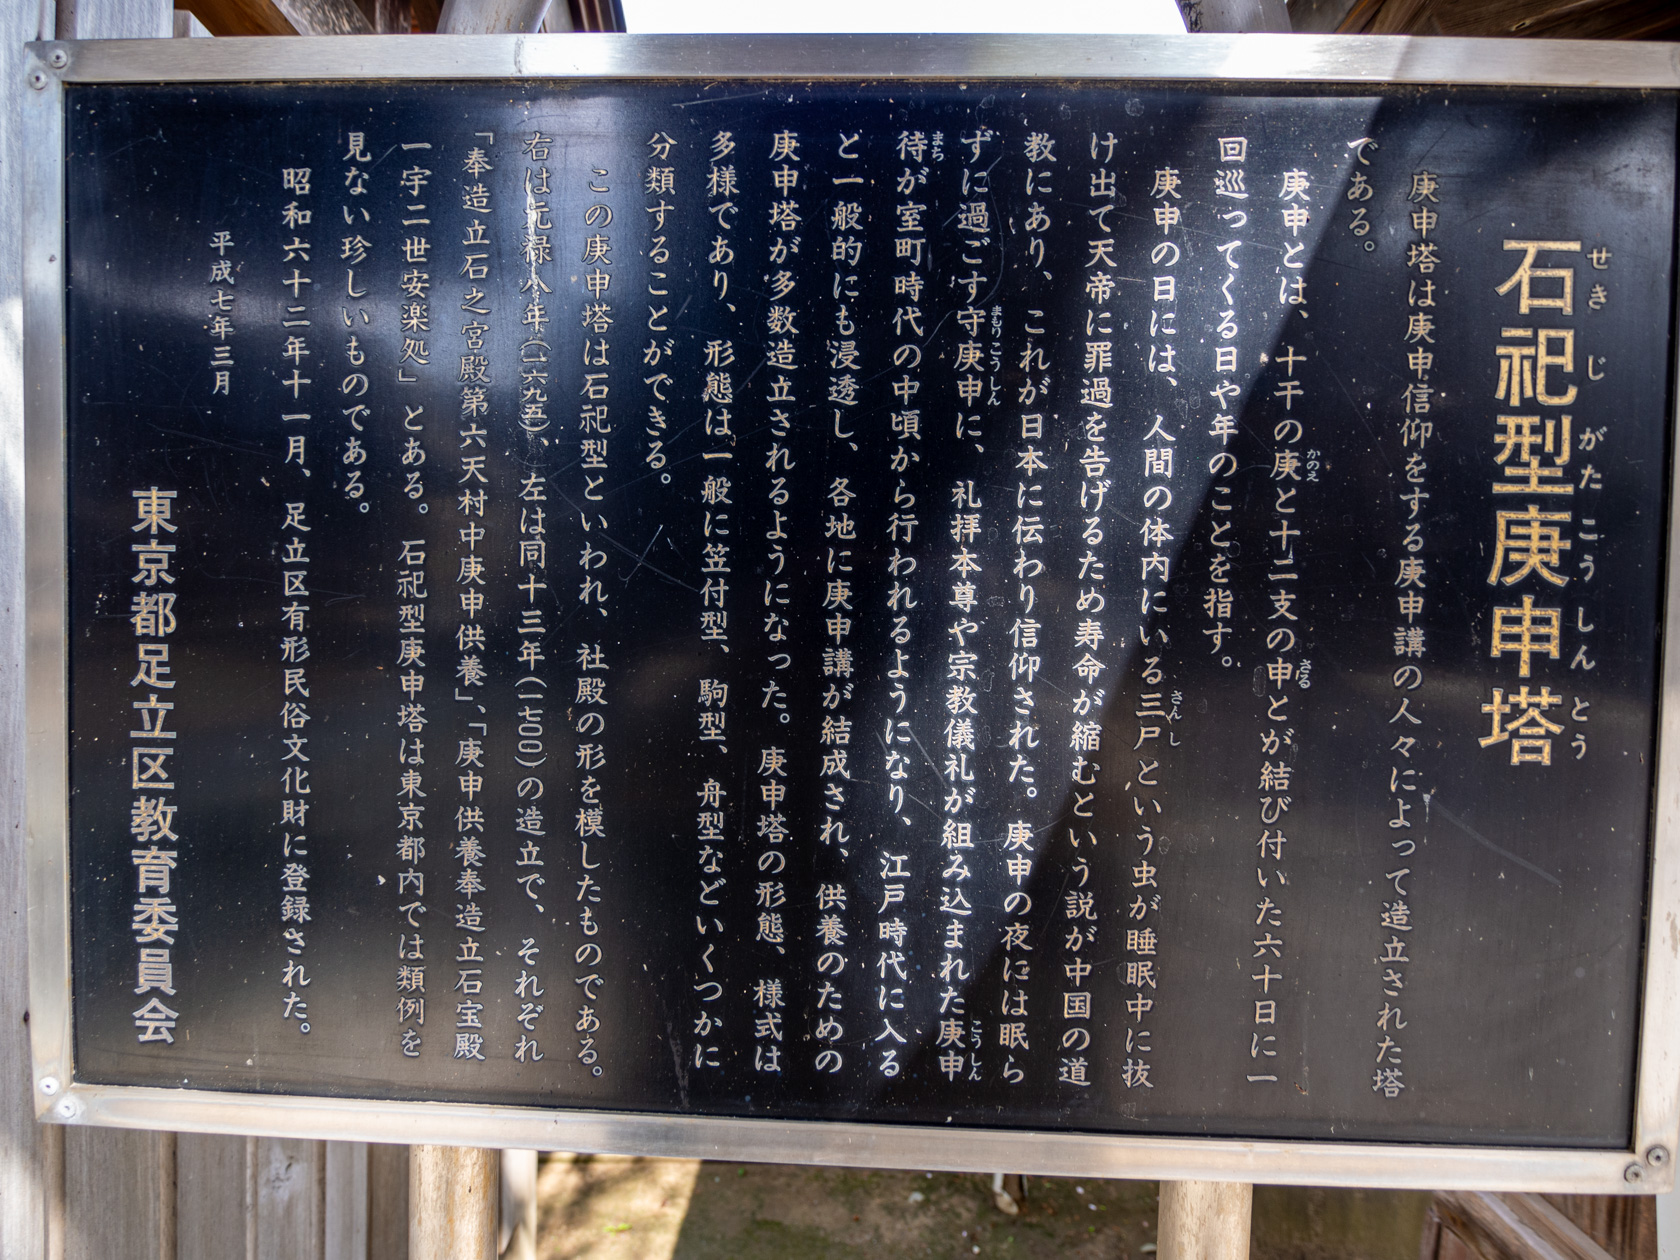 石祀型庚申塔
せきじがたこうしんとう
庚申塔は庚申信仰をする庚申講の人々によって造立された塔
である。
庚申とは、十干の庚と十二支の申とが結び付いた六十日に一
かのえ
さる
回巡ってくる日や年のことを指す。
庚申の日には、人間の体内にいる三尸という虫が睡眠中に抜
さんし
け出て天帝に罪過を告げるため寿命が縮むという説が中国の道
教にあり、これが日本に伝わり信仰された。庚申の夜には眠ら
ずに過ごす守庚申に、礼拝本尊や宗教儀礼が組み込まれた庚申
まもりこうしん
こうしん
待が室町時代の中頃から行われるようになり、江戸時代に入る
まち
と一般的にも浸透し、各地に庚申講が結成され、供養のための
庚申塔が多数造立されるようになった。庚申塔の形態、様式は
多様であり、形態は一般に笠付型、駒型、舟型などいくつかに
分類することができる。
この庚申塔は石祀型といわれ、社殿の形を模したものである。
右は元禄八年(一六九五)、左は同十三年(一七〇〇)の造立で、それぞれ
「奉造立石之宮殿第六天村中庚申供養」、「庚申供養奉造立石宝殿
一宇二世安楽処」とある。石祀型庚申塔は東京都内では類例を
見ない珍しいものである。
昭和六十二年十一月、足立区有形民俗文化財に登録された。
平成七年三月
東京都足立区教育委員会